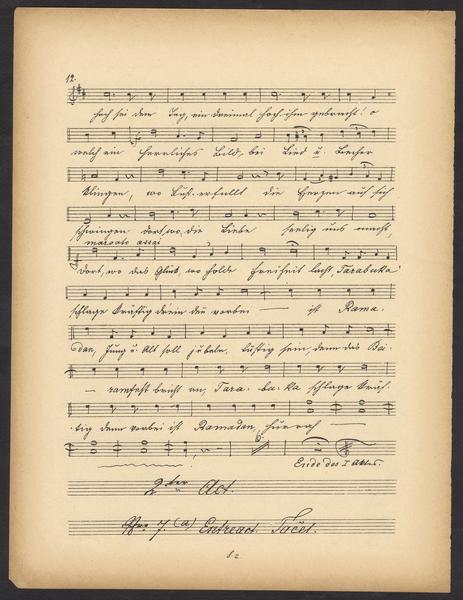 12.
hoch sei dem Tag, ein dreimal hoch ihm gebracht! o
welch ein herrliches Bild, bei Lied u. Becher
klingen, wo Lust erfüllt die Herzen auf sich
schwingen dort, wo die Liebe seelig uns macht,
marcato assai
dort, wo das Glück, wo holde Freiheit lacht, Tarabuka
schlage kräftig drein denn vorbei — ist Rama-
dan, Jung u. Alt soll jubeln, lustig sein, denn das Bai-
— ramfest bricht an, Tara-ba-ka schlage kräf-
tig denn vorbei ist Ramadan, hurrah —
6.
Ende des I. Aktes.
2ter Act.
Nro 7. (a) Entreact. Tacet.